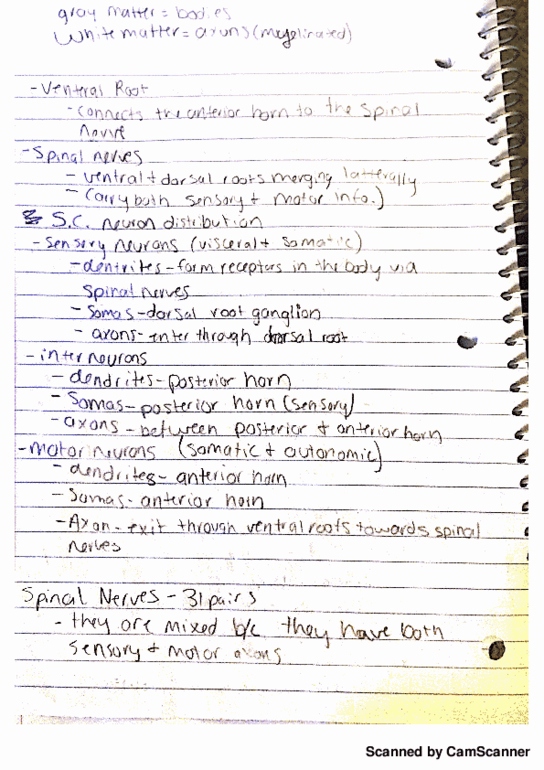 gray matter = bodies
White matter = axons (myelinated)
- Ventral Root
- connects the anterior horn to the spinal
nerve
- Spinal nerves
- ventral + dorsal roots merging latterally
- (carry both sensory + motor info.)
S.C. neuron distribution
- Sensory neurons (visceral + somatic)
- dentrites - form receptors in the body via
spinal nerves
- Somas - dorsal root ganglion
- axons - enter through dorsal root
- interneurons
- dendrites - posterior horn
- Somas - posterior horn (sensory)
- axons - between posterior + anterior horn
- motor neurons (somatic + autonomic)
- dendrites - anterior horn
- Somas - anterior horn
- Axon - exit through ventral roots towards spinal
nerves
Spinal Nerves - 31 pairs
- they are mixed b/c they have both
sensory + motor axons
Scanned by CamScanner